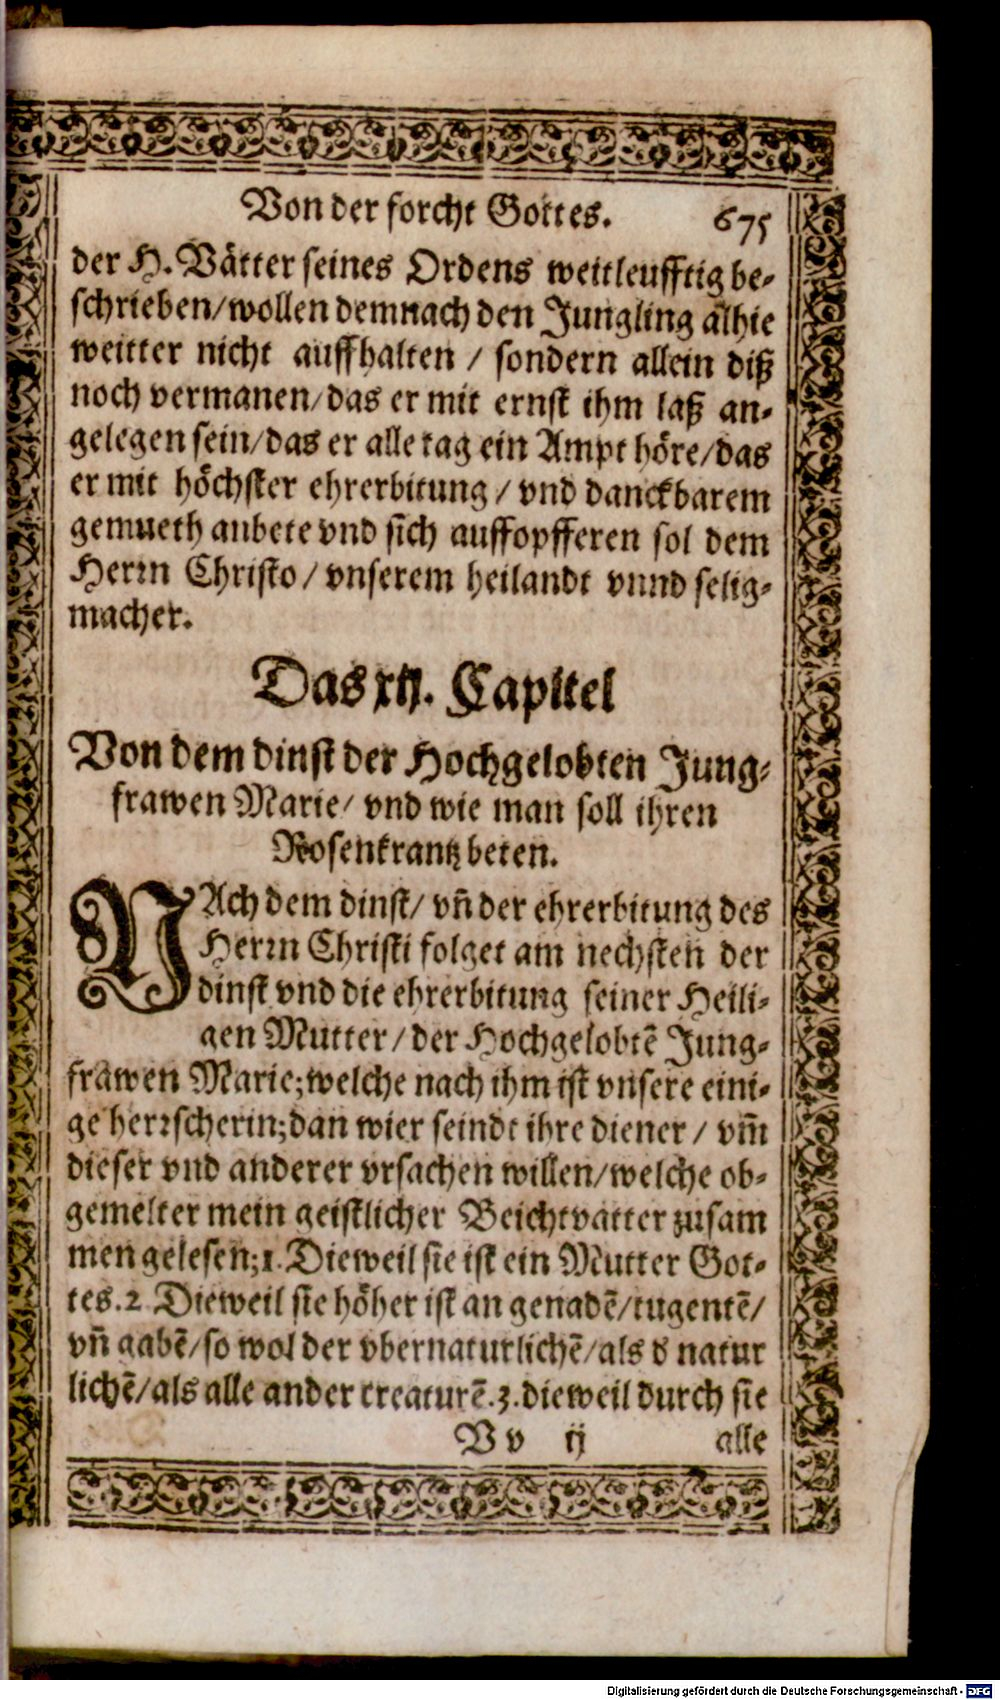 Von der forcht Gottes. 675
der H. Vätter seines Ordens weitleufftig be-
schrieben/wollen demnach den Jungling alhie
weitter nicht auffhalten / sondern allein diß
noch vermanen/das er mit ernst ihm laß an-
gelegen sein/das er alle tag ein Ampt höre/das
er mit höchster ehrerbitung / vnd danckbarem
gemueth anbete vnd sich auffopfferen sol dem
Herꝛn Christo / vnserem heilandt vnnd selig-
macher.
Das xij. Capitel
Von dem dinst der Hochgelobten Jung-
frawen Marie/ vnd wie man soll ihren
Rosenkrantz beten.
NAch dem dinst/ vn̄ der ehrerbitung des
Herꝛn Christi folget am nechsten der
dinst vnd die ehrerbitung seiner Heili-
gen Mutter / der Hochgelobtē Jung-
frawen Marie; welche nach ihm ist vnsere eini-
ge herꝛscherin; dan wier seindt ihre diener / vm̄
dieser vnd anderer vrsachen willen/welche ob-
gemelter mein geistlicher Beichtvatter zusam
men gelesen; 1. Dieweil sie ist ein Mutter Got-
tes. 2 Dieweil sie höher ist an genadē/tugentē/
vn̄ gabē/so wol der vbernaturlichē/als d natur
lichē/als alle ander creaturē. 3. dieweil durch sie
V v ij alle
Digitalisierung gefördert durch die Deutsche Forschungsgemeinschaft - DFG